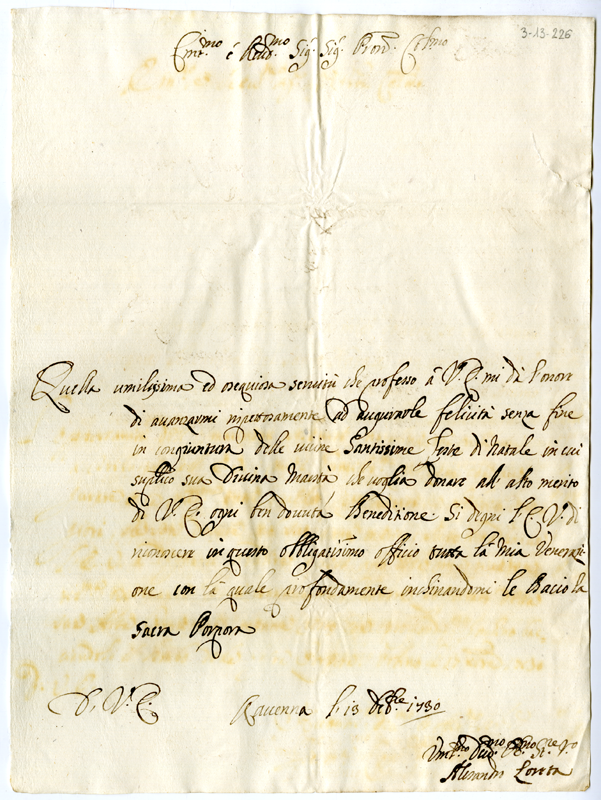 3-13-226
Em:mo é Reud:mo Sig:r Sig:r Pron: Col:mo
Quella umilissima ed ossequiosa servitù che professo à V. E. mi dà l'onore
di avanzarmi rispettosamente ad augurarle felicità senza fine
in congiuntura delle vicine Santissime feste di Natale in cui
suplico sua Divina Maestà che voglia donare all' alto merito
di V. E. ogni ben dovuta Benedizione. Si degni l'E. V. di
riconoscere in questo obligatissimo officio tutta la mia Venerazi-
one con la quale profondamente inchinandomi le Bacio la
Sacra Porpora
Di V. E.
Ravenna li 13 Xbre 1730
Alessandro